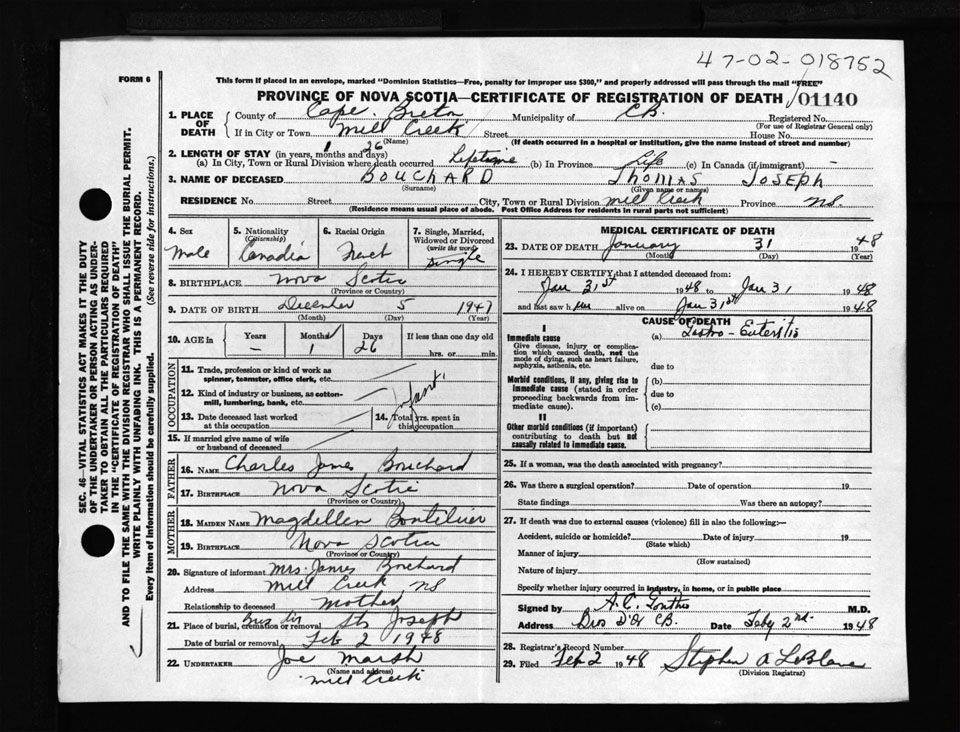 47-02-018752
FORM 6
This form if placed in an envelope, marked "Dominion Statistics—Free, penalty for improper use $300," and properly addressed will pass through the mail "FREE"
PROVINCE OF NOVA SCOTIA—CERTIFICATE OF REGISTRATION OF DEATH 01140
1. PLACE OF DEATH
County of Cape Breton Municipality of C.B. Registered No.
(Name) (For use of Registrar General only)
If in City or Town Mill Creek Street House No.
(If death occurred in a hospital or institution, give the name instead of street and number)
2. LENGTH OF STAY (in years, months and days) 1 26
(a) In City, Town or Rural Division where death occurred Lifetime (b) In Province Life (c) In Canada (if immigrant) -
3. NAME OF DECEASED BOUCHARD THOMAS JOSEPH
(Surname) (Given name or names)
RESIDENCE No. Street City, Town or Rural Division Mill Creek Province NS.
(Residence means usual place of abode. Post Office Address for residents in rural parts not sufficient)
4. Sex
Male
5. Nationality (Citizenship)
Canadia
6. Racial Origin
7. Single, Married, Widowed or Divorced (write the word)
Single
8. BIRTHPLACE Nova Scotia
(Province or Country)
9. DATE OF BIRTH December 5 1947
(Month) (Day) (Year)
10. AGE in
Years Months Days If less than one day old
– 1 26 hrs. or min.
OCCUPATION
11. Trade, profession or kind of work as spinner, teamster, office clerk, etc.
12. Kind of industry or business, as cotton-mill, lumbering, bank, etc.
Infant
13. Date deceased last worked at this occupation
14. Total yrs. spent in this occupation
15. If married give name of wife or husband of deceased
FATHER
16. NAME Charles James Bouchard
17. BIRTHPLACE Nova Scotia
(Province or Country)
MOTHER
18. MAIDEN NAME Magdellen Bontilier
19. BIRTHPLACE Nova Scotia
(Province or Country)
20. Signature of informant Mrs. James Bouchard
Address Mill Creek NS
Relationship to deceased Mother
21. Place of burial, cremation or removal Sts Joseph
Date of burial or removal Feb 2 1948
22. UNDERTAKER Joe Marsh
(Name and address)
"Mill Creek"
MEDICAL CERTIFICATE OF DEATH
23. DATE OF DEATH January 31 1948
(Month) (Day) (Year)
24. I HEREBY CERTIFY that I attended deceased from:
Jan 31st 1948 to Jan 31, 1948
and last saw him alive on Jan 31st 1948
CAUSE OF DEATH
I
Immediate cause
Give disease, injury or complication which caused death, not the mode of dying, such as heart failure, asphyxia, asthenia, etc.
(a) Gastro-Enteritis
due to
Morbid conditions, if any, giving rise to immediate cause (stated in order proceeding backwards from immediate cause).
(b)
due to
(c)
II
Other morbid conditions (if important) contributing to death but not causally related to immediate cause.
25. If a woman, was the death associated with pregnancy?
26. Was there a surgical operation? Date of operation 19
State findings Was there an autopsy?
27. If death was due to external causes (violence) fill in also the following:—
Accident, suicide or homicide? Date of injury 19
(State which)
Manner of injury
(How sustained)
Nature of injury
Specify whether injury occurred in industry, in home, or in public place
Signed by A.C. M.D.
Address C.B. Date Feby 2nd 1948
28. Registrar's Record Number
29. Filed Feb 2 1948 Stephen A LeBlanc
(Division Registrar)
SEC. 46—VITAL STATISTICS ACT MAKES IT THE DUTY
OF THE UNDERTAKER OR PERSON ACTING AS UNDER-
TAKER TO OBTAIN ALL THE PARTICULARS REQUIRED
IN THE "CERTIFICATE OF REGISTRATION OF DEATH"
AND TO FILE THE SAME WITH THE DIVISION REGISTRAR WHO SHALL ISSUE THE BURIAL PERMIT.
WRITE PLAINLY WITH UNFADING INK. THIS IS A PERMANENT RECORD.
Every item of information should be carefully supplied. (See reverse side for instructions.)